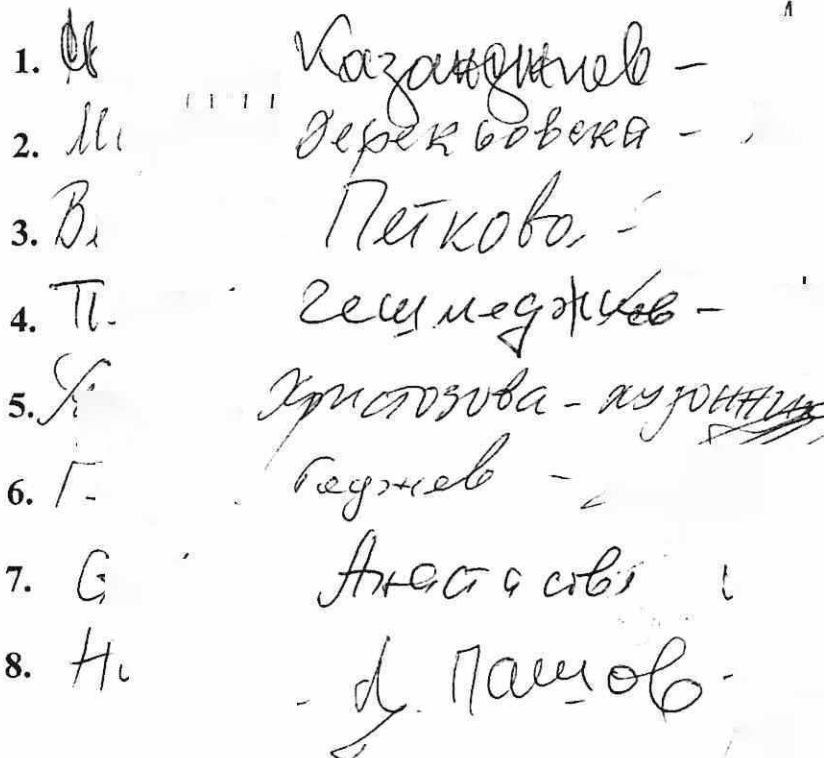 1. Казанджиев -
2. М. Дерекьовска -
3. В. Петкова -
4. П. Чешмеджиев -
5. Христозова -
6. Г. Гаджев -
7. С Анастасов
8. Н. Пашов -